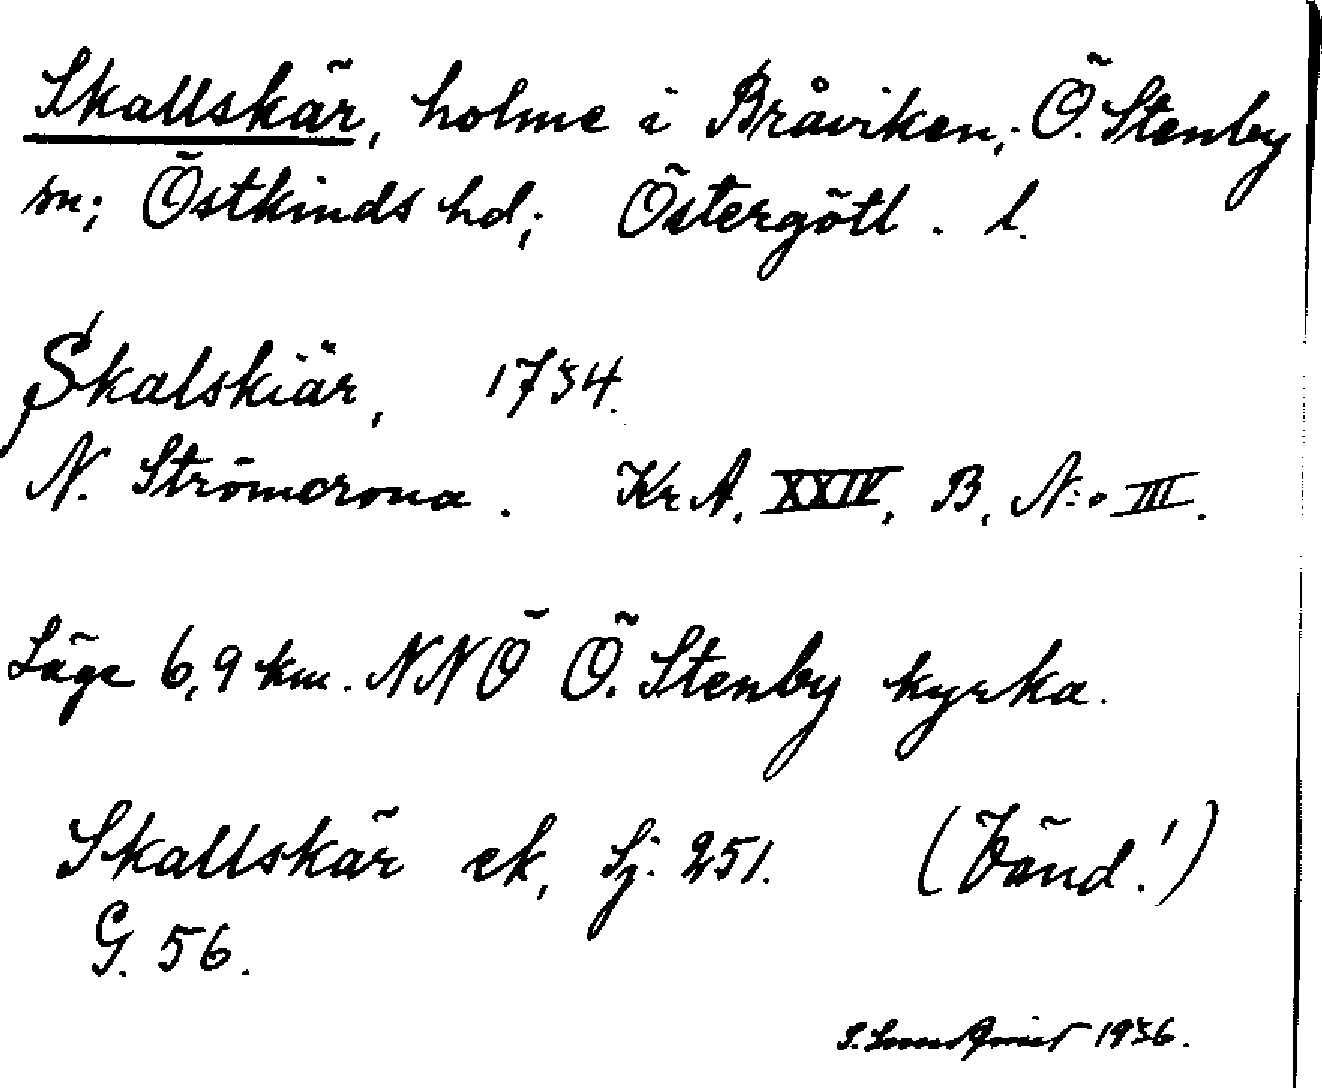 Skallskär, holme i Bråviken; Ö. Stenby
sn; Östkinds hd; Östergötl. l.
Skalskiär, 1734.
N. Strömcrona. KrA. XXIV, B, N:o III.
Läge 6,9 km. NNÖ Ö. Stenby kyrka.
Skallskär ek, Sj. 251. (Vänd!)
G. 56.
S. Lundqvist 1936.